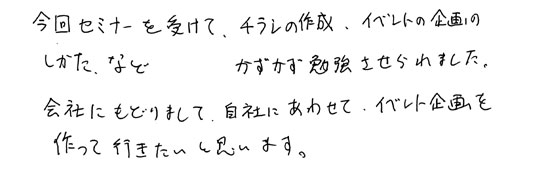 今回セミナーを受けて、チラシの作成、イベントの企画の
しかた、など かずかず勉強させられました。
会社にもどりまして、自社にあわせて、イベント企画を
作って行きたいと思います。